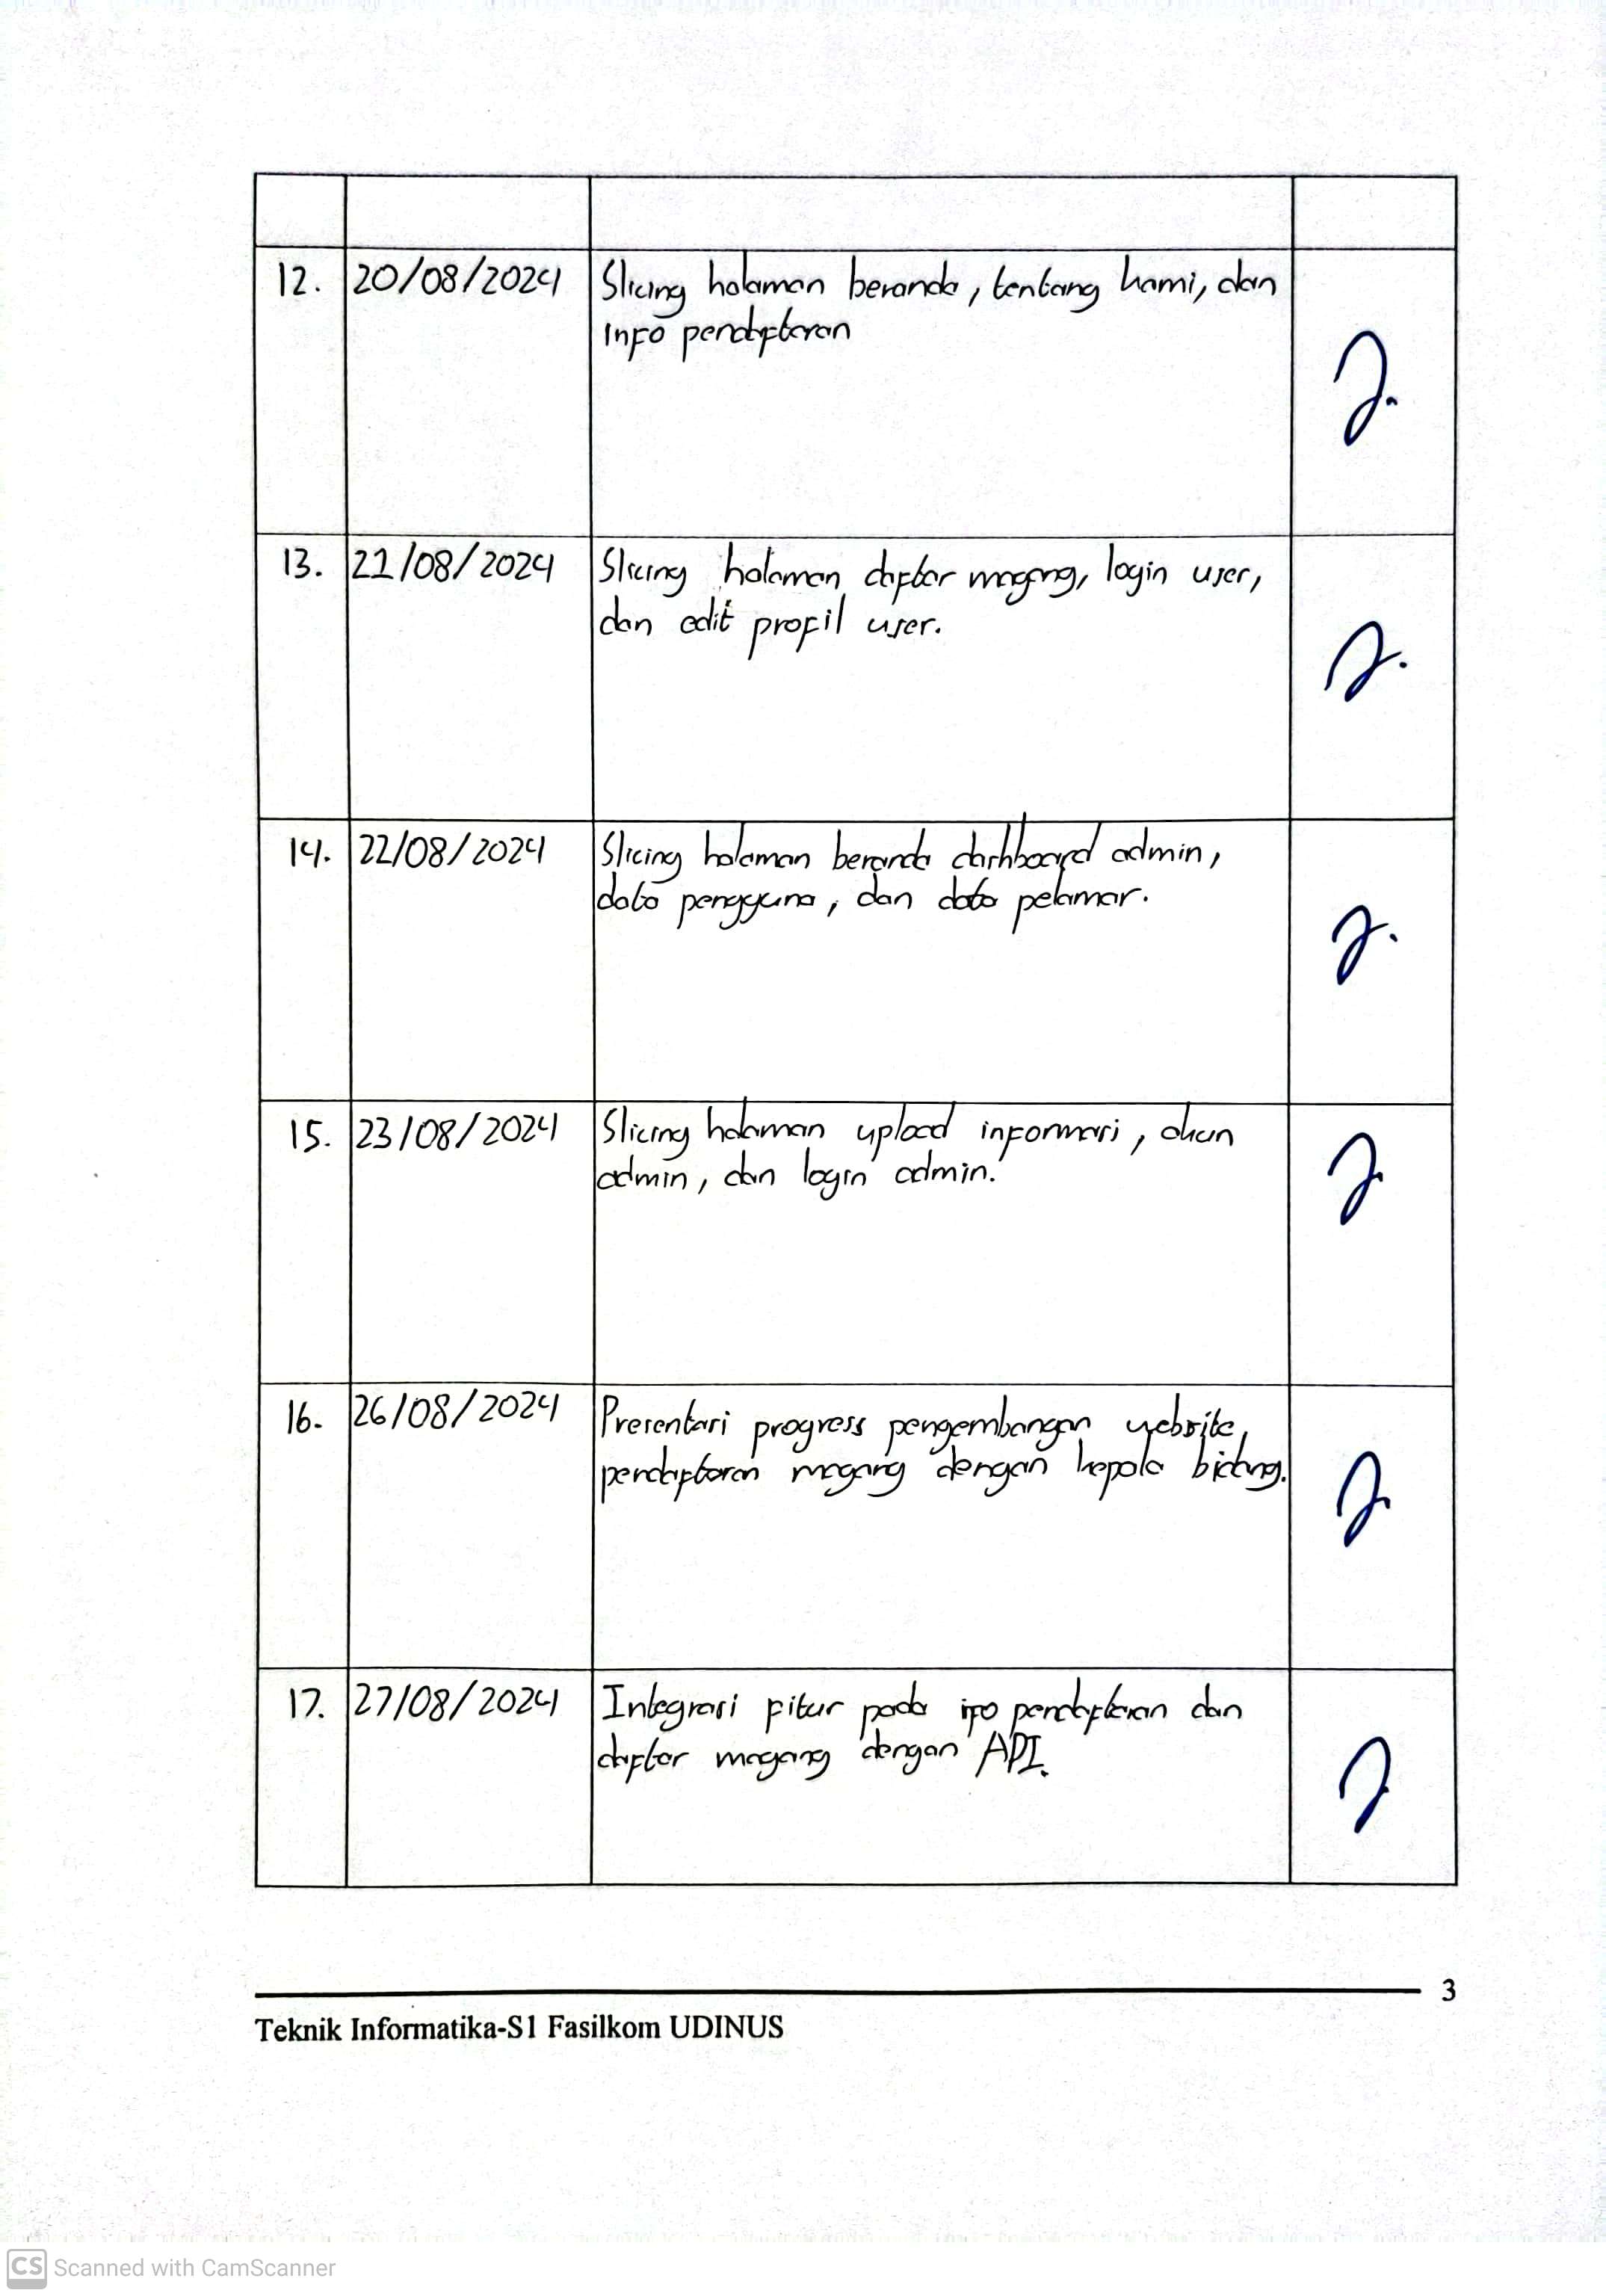 12. 20/08/2024 Slicing halaman beranda, tentang kami, dan
info pendaftaran
13. 21/08/2024 Slicing halaman daftar magang, login user,
dan edit profil user.
14. 22/08/2024 Slicing halaman beranda dashboard admin,
data pengguna, dan data pelamar.
15. 23/08/2024 Slicing halaman upload informasi, akun
admin, dan login admin.
16. 26/08/2024 Presentasi progress pengembangan website
pendaftaran magang dengan kepala bidang.
17. 27/08/2024 Integrasi fitur pada info pendaftaran dan
daftar magang dengan API.
3
Teknik Informatika-S1 Fasilkom UDINUS
CS Scanned with CamScanner